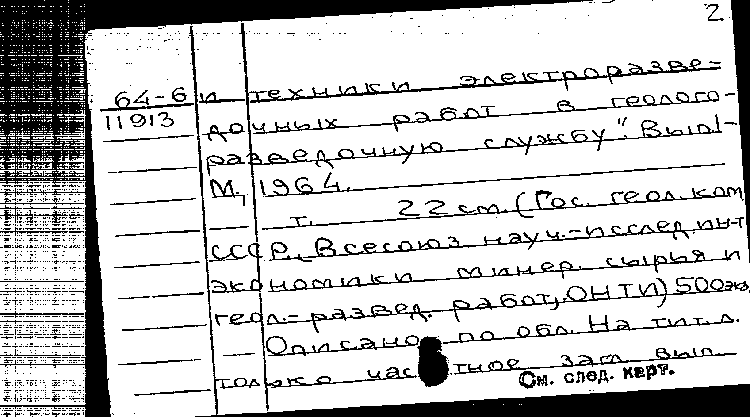 2
64-6 и техники электроразве=
11913 дочных работ в геолого-
разведочную службу". Вып1-
М., 1964.
т. 22 см. (Гос. геол. ком
СССР, Всесоюз науч.-исслед. ин-т
экономики минер. сырья и
геол.-развед. работ, ОНТИ) 500экз.
Описано по обл. На тит. л.
только частное загл. вып.
См. след. карт.